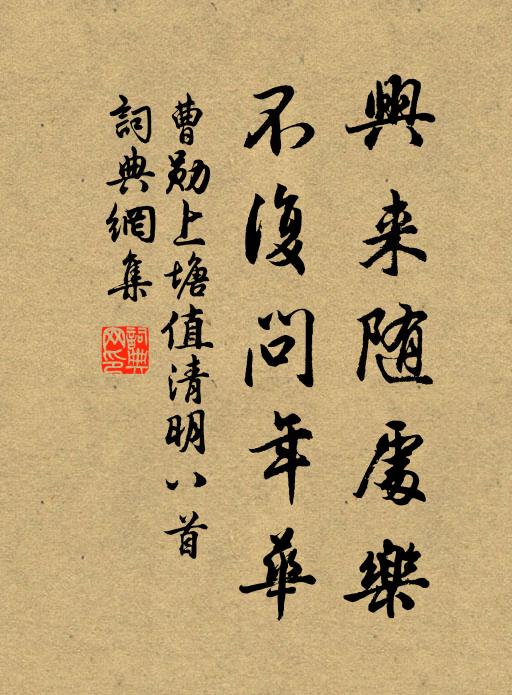 興来随處樂
不復問年華
曹勛上塘值清明八首
詞典網集
詞典网印